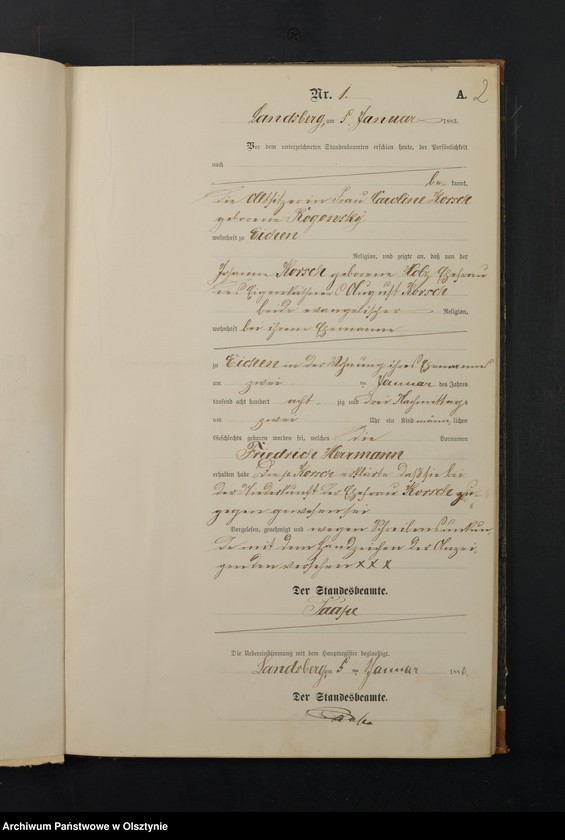 Nr. 1. A. 2
Landsberg, am 5. Januar 1883.
Vor dem unterzeichneten Standesbeamten erschien heute, der Persönlichkeit
nach
be kannt,
die Altsitzerin Frau Caroline Korsch
geborene Rogowsky
wohnhaft zu Eichen
Religion, und zeigte an, daß von der
Johanne Korsch geborene Holz Ehefrau
des Eigenkäthners August Korsch
beide evangelischer Religion,
wohnhaft bei ihrem Ehemanne
zu Eichen in der Wohnung ihres Ehemannes
am zwei ten Januar des Jahres
tausend acht hundert acht zig und drei Nachmittags
um zwei Uhr ein Kind männ lichen
Geschlechts geboren worden sei, welches die Vornamen
Friedrich Herrmann
erhalten habe. Die p. Korsch erklärte daß sie bei
der Niederkunft der Ehefrau Korsch zu-
gegen gewesen sei
Vorgelesen, genehmigt und wegen Schreibensunkun
de mit dem Handzeichen der Anzei-
genden versehen x x x
Der Standesbeamte.
Die Uebereinstimmung mit dem Hauptregister beglaubigt.
Landsberg, am 5 ten Januar 188
Der Standesbeamte.
Archiwum Państwowe w Olsztynie